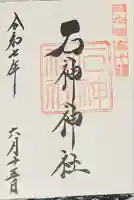 石神神社
令和七年
六月十五日